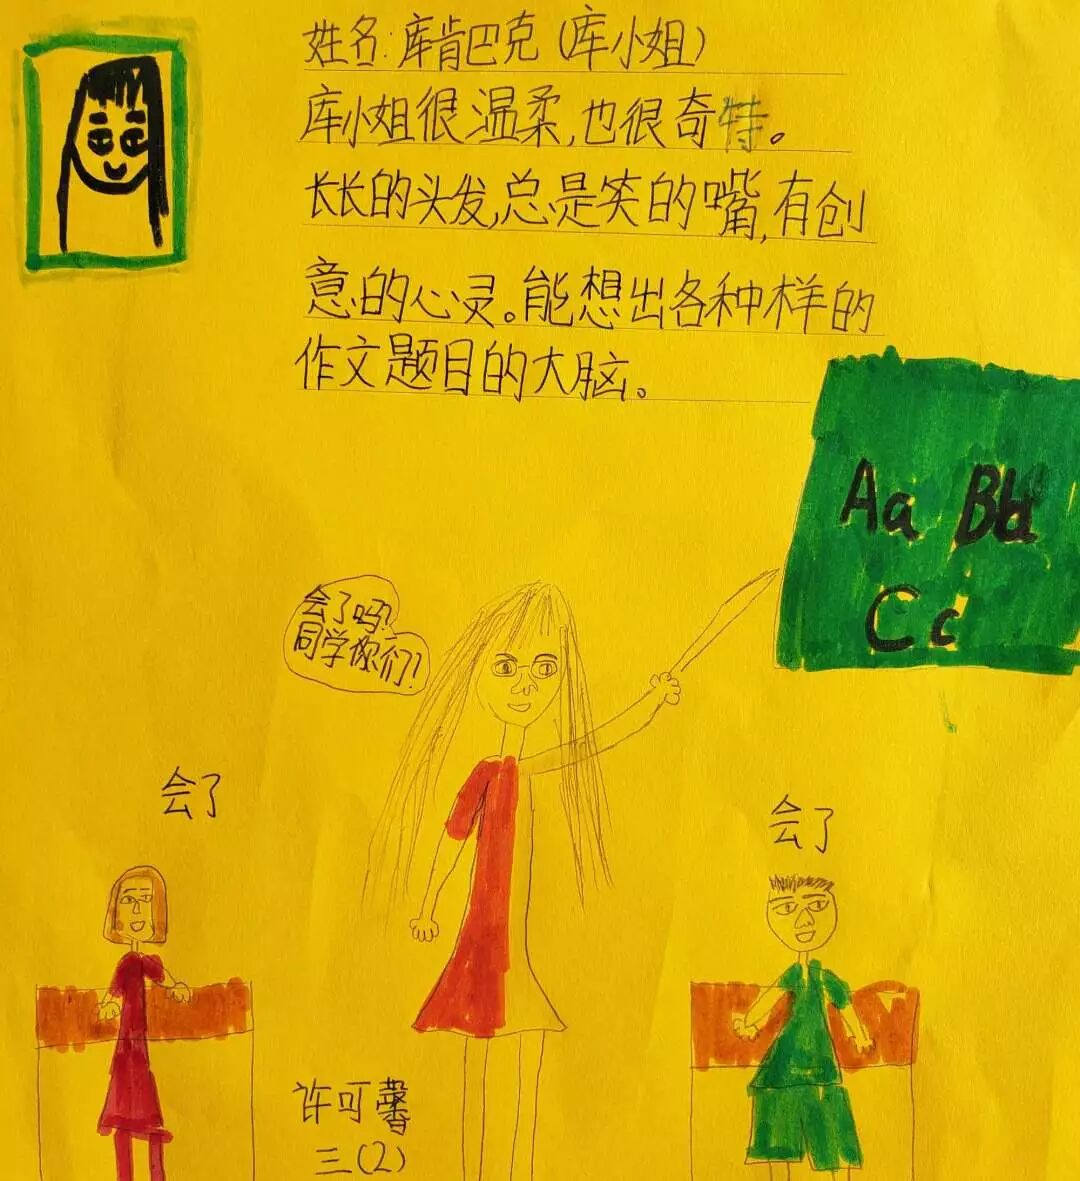 姓名:库肯巴克(库小姐)
库小姐很温柔,也很奇特。
长长的头发,总是笑的嘴,有创
意的心灵。能想出各种样的
作文题目的大脑。
Aa Bb
Cc
会了吗?
同学你们!
会了
会了
许可馨
三(2)